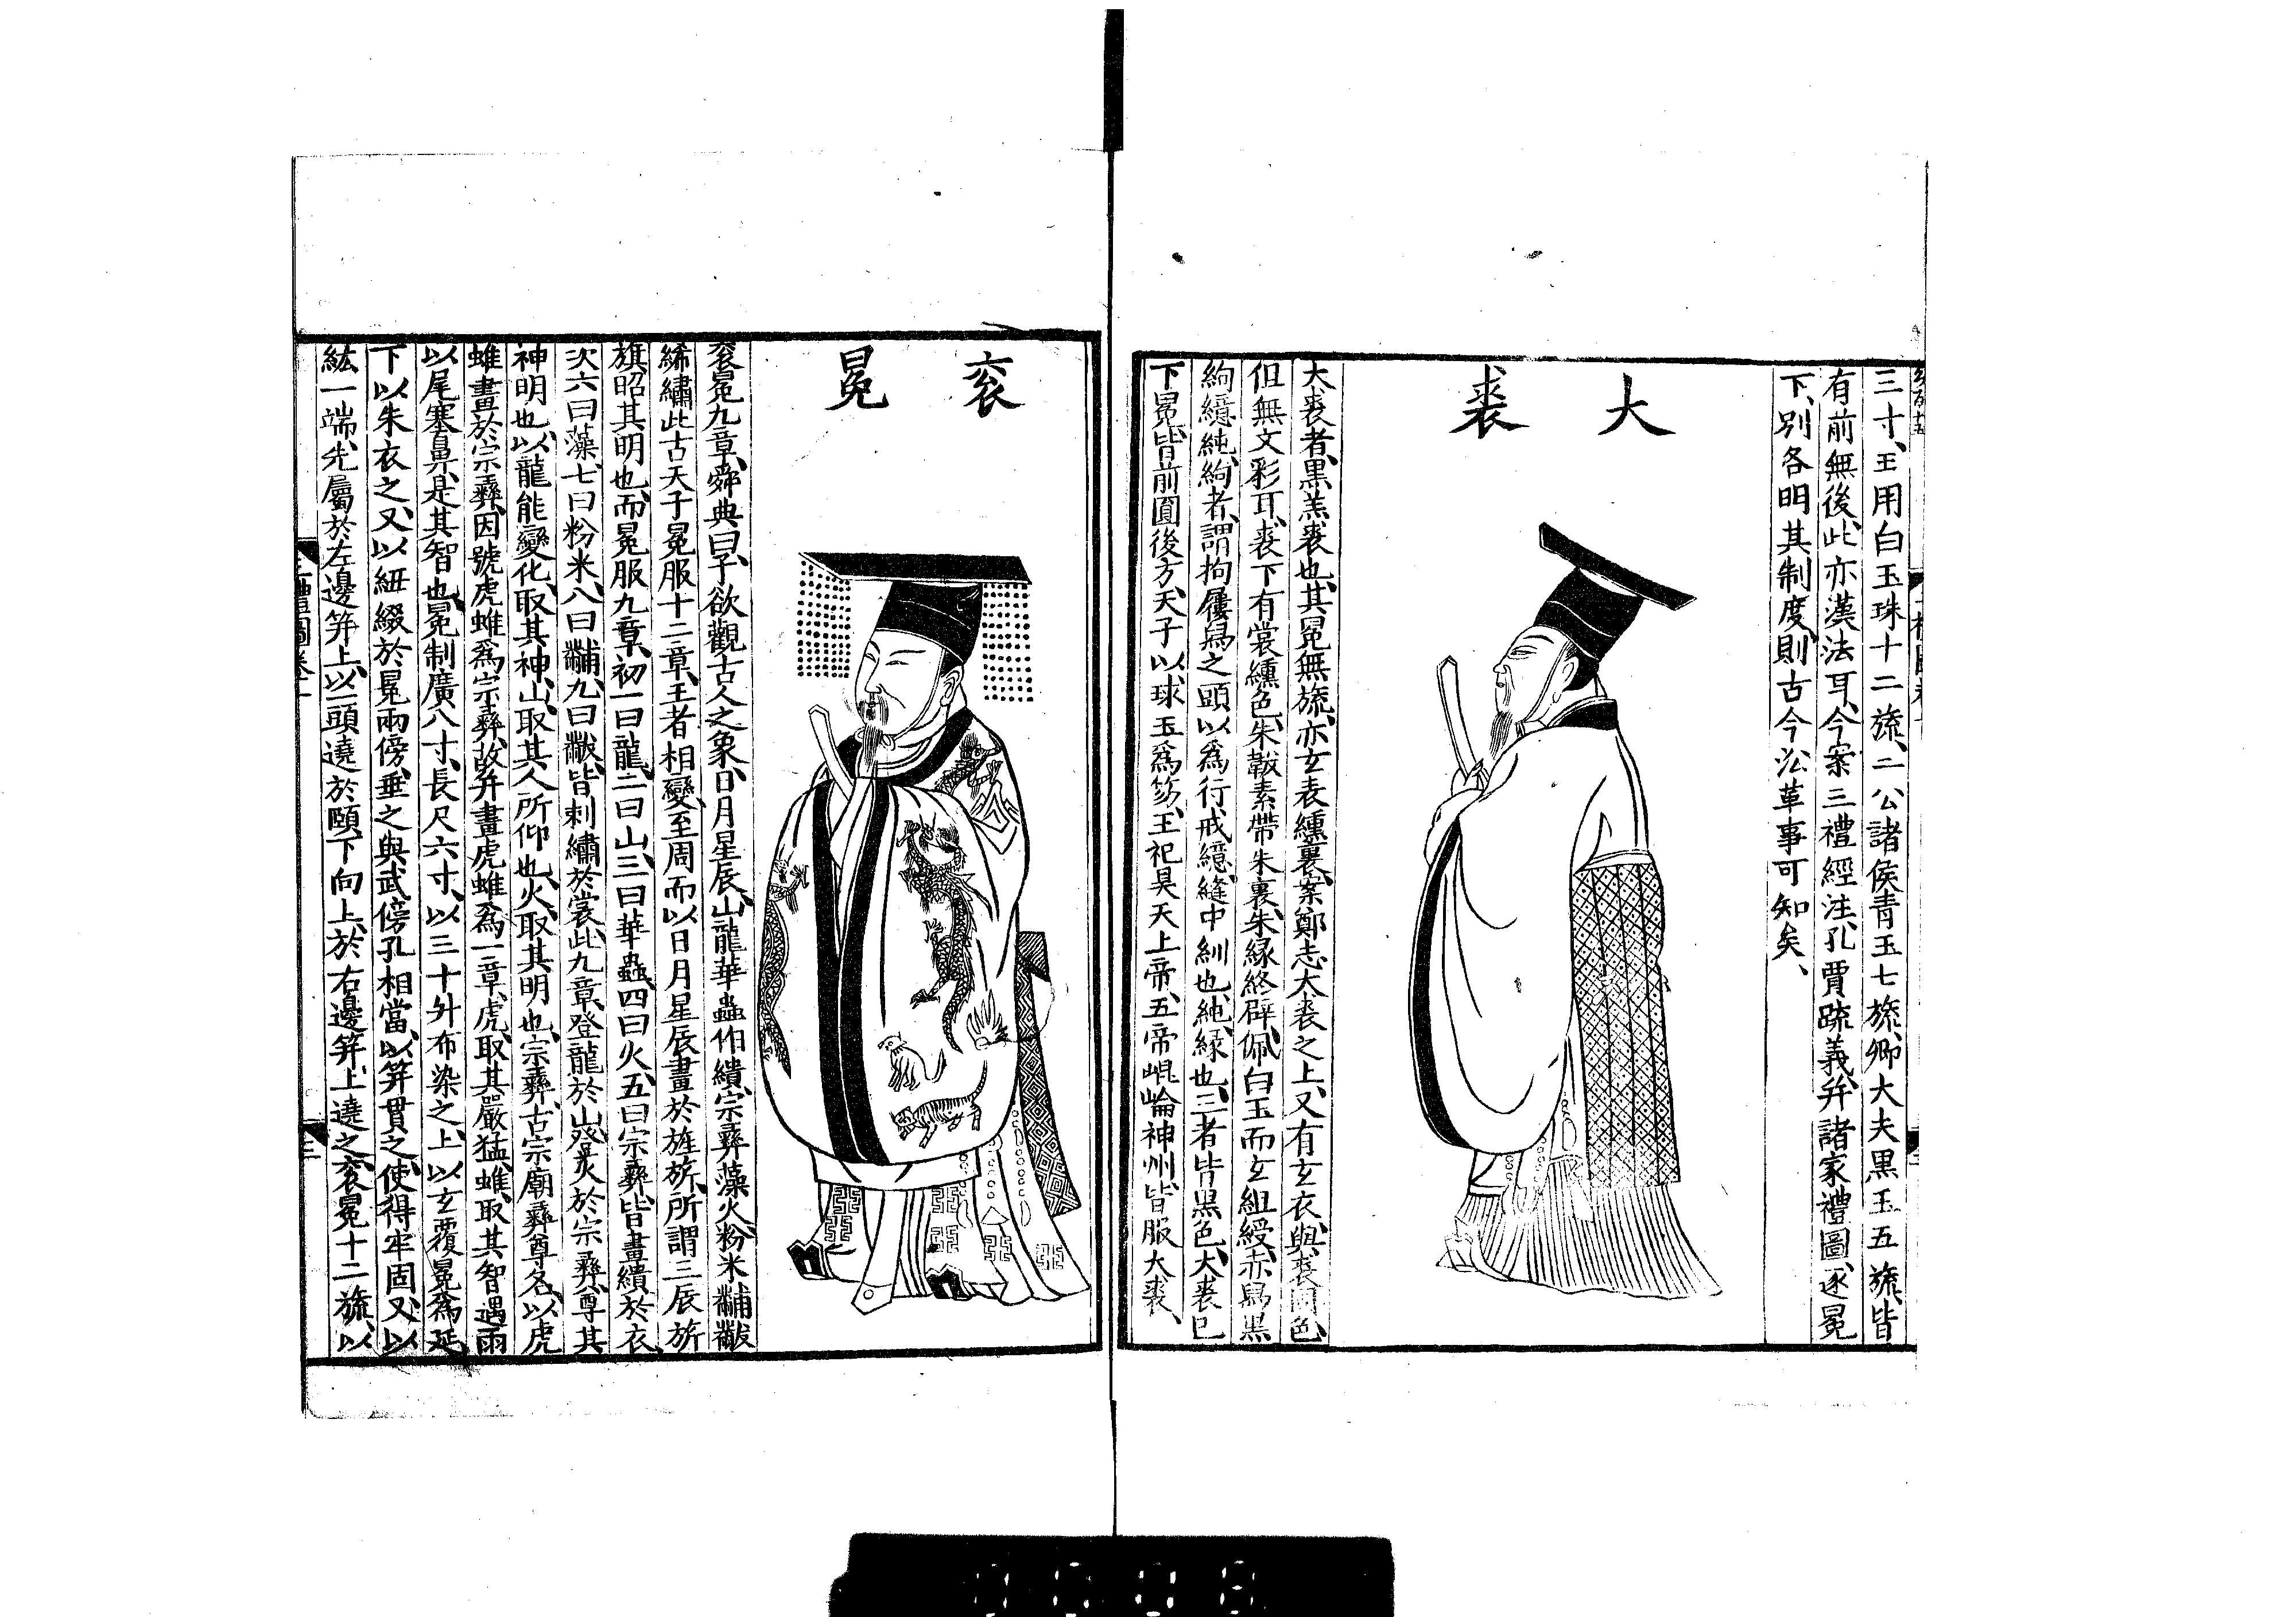 三寸、王用白玉珠十二旒、二公諸侯青玉七旒、卿大夫黑玉五旒、皆
有前無後、此亦漢法耳、今案三禮經注、孔賈疏義、并諸家禮圖、逐冕
下、別各明其制度、則古今沿革事可知矣、
大裘
大裘者、黑羔裘也、其冕無旒、亦玄表纁裏、案鄭志、大裘之上、又有玄衣、與裘同色、
但無文彩耳、裘下有裳纁色、朱韍素帶朱裏、朱綠終辟、佩白玉而玄組綬、赤舃黑
絇繶純、絇者、謂拘屨舃之頭以爲行戒、繶、縫中紃也、純、緣也、三者皆黑色、大裘已
下冕、皆前圓後方、天子以球玉爲笏、王祀昊天上帝、五帝崐崘神州、皆服大裘、
袞冕
袞冕九章、舜典曰、予欲觀古人之象、日月星辰、山龍華蟲作繢、宗彝藻火粉米黼黻
絺繡、此古天子冕服十二章、王者相變、至周而以日月星辰畫於旌旂、所謂三辰旂
旗昭其明也、而冕服九章、初一曰龍、二曰山、三曰華蟲、四曰火、五曰宗彝、皆畫繢於衣
次六曰藻、七曰粉米、八曰黼、九曰黻、皆刺繡於裳、此九章、登龍於山、登火於宗彝、尊其
神明也、以龍能變化、取其神、山、取其人所仰也、火、取其明也、宗彝、古宗廟彝尊名、以虎
蜼畫於宗彝、因號虎蜼爲宗彝、故并畫虎蜼爲一章、虎、取其嚴猛、蜼、取其智、遇雨
以尾塞鼻、是其智也、冕制廣八寸、長尺六寸、以三十升布染之、上以玄覆冕爲延、
下以朱衣之、又以紐綴於冕兩傍、垂之與武傍孔相當、以笄貫之、使得牢固、又以
紘一端、先屬於左邊笄上、以一頭遶於頤、下向上、於右邊笄上遶之、袞冕十二旒、以
三禮圖卷一